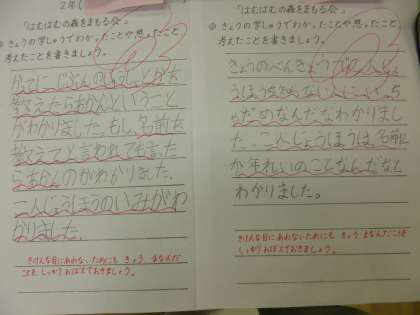 2年(
「はむはむの森をまもる会」
※きょうの学しゅうでわかったことや思ったこと、
考えたことを書きましょう。
かってにじぶんのしょうとかを
教えたらあかんということ
がわかりました。もし、名前を
教えてと言われても言った
らあかんのがわかりました。
こ人じょうほうのいみがわ
かりました。
きけんな目にあわないためにも きょう まなんだ
ことを しっかり おぼえておきましょう。
「はむはむの森をまもる会」
※きょうの学しゅうでわかったことや思ったこと、
考えたことを書きましょう。
きょうのべんきょうで
うほうをしらない人に
ゃだめなんだなわかりまし
た。こ人じょうほうは名前と
か年れいのことなんだなと
わかりました。
きけんな目にあわないためにも きょう まなんだ
ことを しっかり おぼえておきましょう。